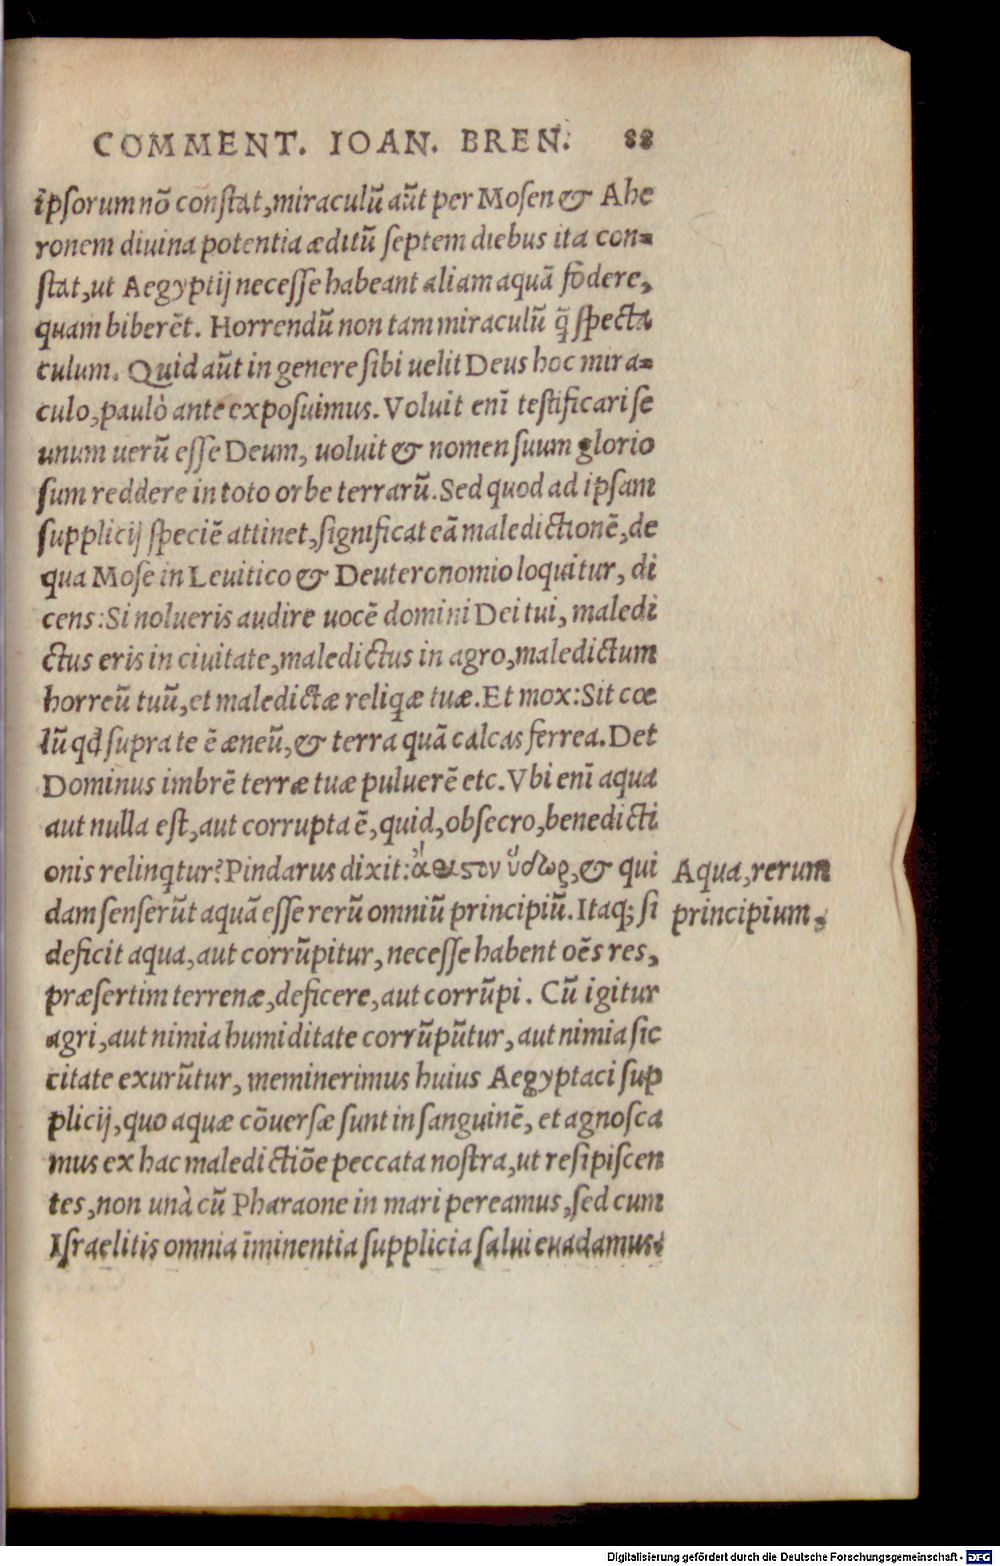 COMMENT. IOAN. BREN. 88
ipsorum nõ constat, miraculũ aũt per Mosen & Ahe
ronem diuina potentia æditũ septem diebus ita con=
stat, ut Aegyptij necesse habeant aliam aquã fodere,
quam biberẽt. Horrendũ non tam miraculũ q̃ specta
culum. Quid aũt in genere sibi uelit Deus hoc mira=
culo, paulò ante exposuimus. Voluit eñi testificari se
unum uerũ esse Deum, uoluit & nomen suum glorio
sum reddere in toto orbe terrarũ. Sed quod ad ipsam
supplicij speciẽ attinet, significat eã maledictionẽ, de
qua Mose in Leuitico & Deuteronomio loquitur, di
cens: Si nolueris audire uocẽ domini Dei tui, maledi
ctus eris in ciuitate, maledictus in agro, maledictum
horreũ tuũ, et maledictæ reliqæ tuæ. Et mox: Sit cœ
lũ qđ supra te ẽ æneũ, & terra quã calcas ferrea. Det
Dominus imbrẽ terræ tuæ puluerẽ etc. Vbi eñi aqua
aut nulla est, aut corrupta ẽ, quid, obsecro, benedicti
onis relinqtur? Pindarus dixit: ἄριστον ὕδωρ, & qui
dam senserũt aquã esse rerũ omniũ principiũ. Itaq; si
deficit aqua, aut corrũpitur, necesse habent oẽs res,
præsertim terrenæ, deficere, aut corrũpi. Cũ igitur
agri, aut nimia humiditate corrũpũtur, aut nimia sic
citate exurũtur, meminerimus huius Aegyptaci sup
plicij, quo aquæ cõuersæ sunt in sanguinẽ, et agnosca
mus ex hac maledictiõe peccata nostra, ut resipiscen
tes, non unà cũ Pharaone in mari pereamus, sed cum
Israelitis omnia ĩminentia supplicia salui euadamus.
Aqua, rerum
principium.
Digitalisierung gefördert durch die Deutsche Forschungsgemeinschaft - DFG